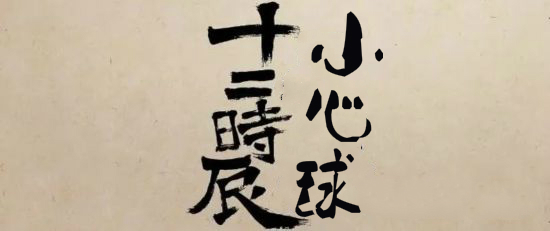 小心球
十二時辰